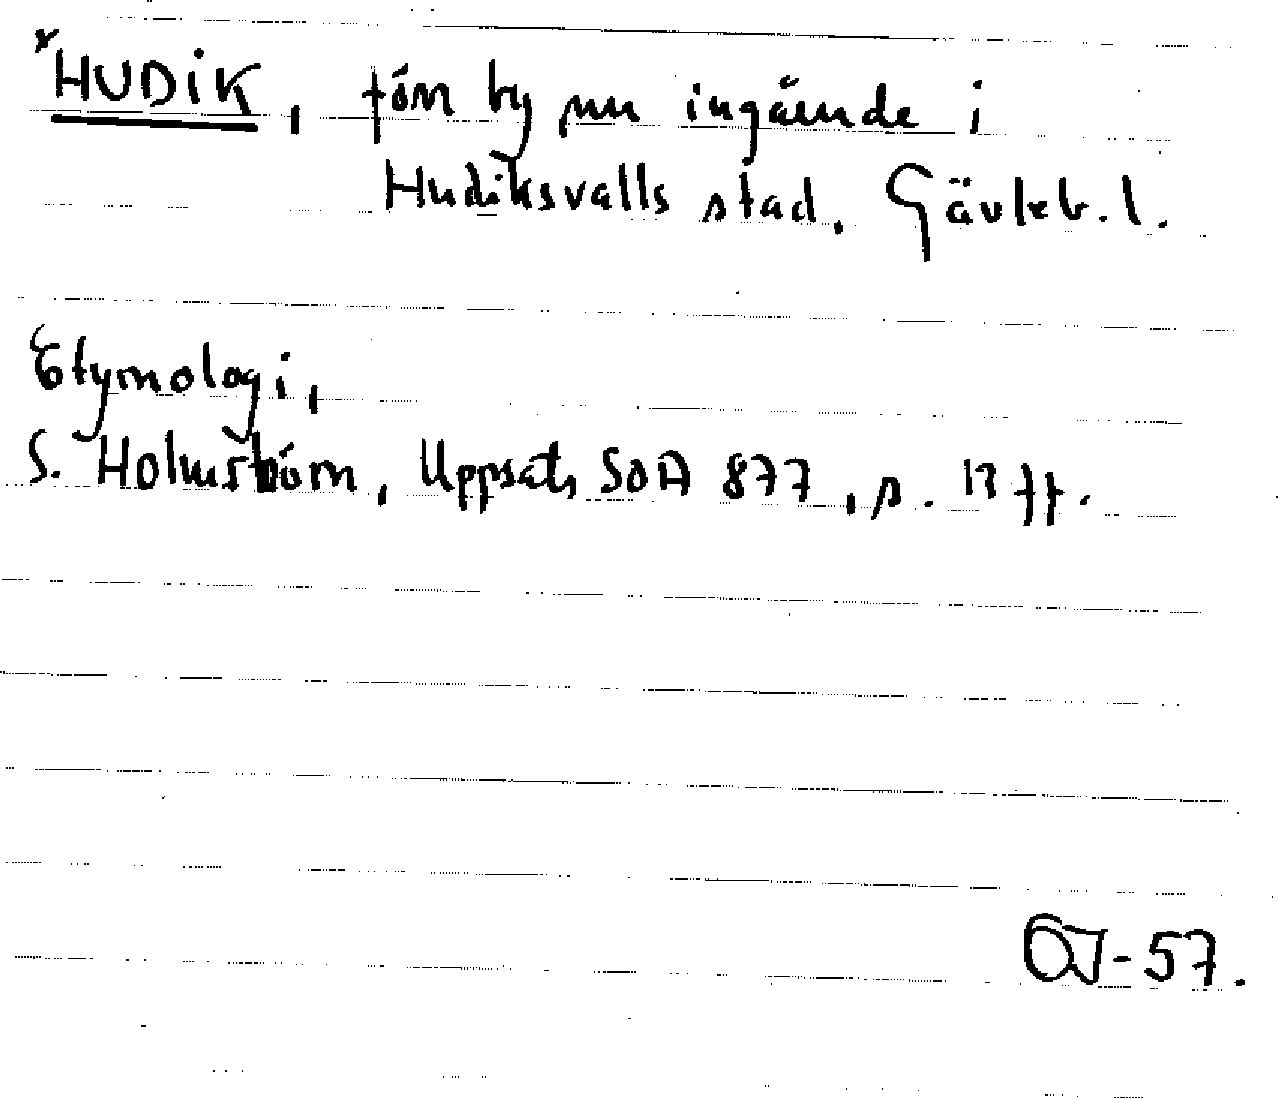 *HUDIK, förr by nu ingående i
Hudiksvalls stad. Gävleb. l.
Etymologi,
S. Holmström, Uppsats SOA 877, s. 17 ff.
-57.